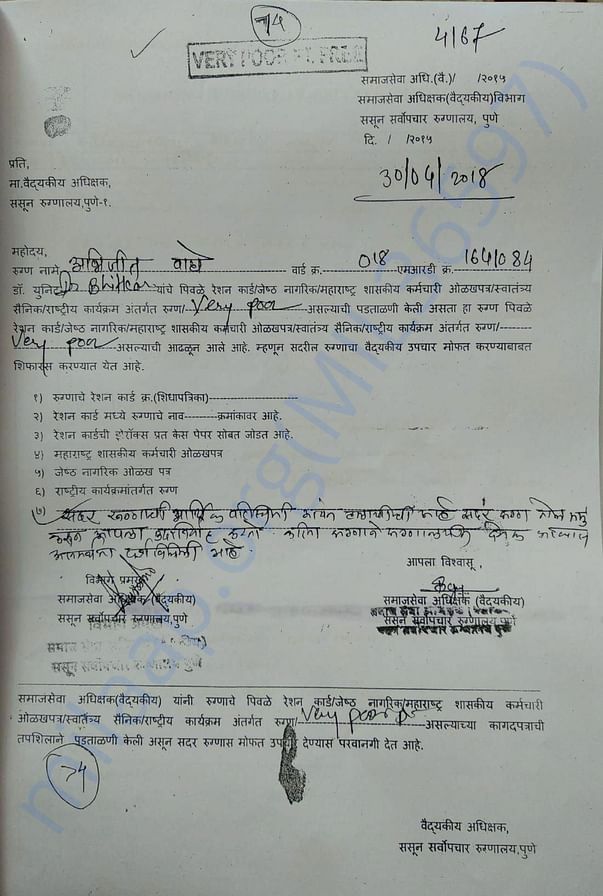 74
4167
VERY POOR PT. FREE
समाजसेवा अधि.(वै.)/ /२०१५
समाजसेवा अधिक्षक(वैद्यकीय)विभाग
ससून सर्वोपचार रुग्णालय, पुणे
दि. / /२०१५
30/04/2018
प्रति,
मा.वैद्यकीय अधिक्षक,
ससून रुग्णालय,पुणे-१.
महोदय,
रुग्ण नामे अभिजीत वाघे वार्ड क्र. 018 एमआरडी क्र. 164084
डॉ. युनिट यांचे पिवळे रेशन कार्ड/जेष्ठ नागरिक/महाराष्ट्र शासकीय कर्मचारी ओळखपत्र/स्वातंत्र्य
सैनिक/राष्ट्रीय कार्यक्रम अंतर्गत रुग्ण/ Very poor असल्याची पडताळणी केली असता हा रुग्ण पिवळे
रेशन कार्ड/जेष्ठ नागरिक/महाराष्ट्र शासकीय कर्मचारी ओळखपत्र/स्वातंत्र्य सैनिक/राष्ट्रीय कार्यक्रम अंतर्गत रुग्ण/--------
Very poor असल्याची आढळून आले आहे. म्हणून सदरील रुग्णाचा वैद्यकीय उपचार मोफत करण्याबाबत
शिफारस करण्यात येत आहे.
१) रुग्णाचे रेशन कार्ड क्र.(शिधापत्रिका)--------------------
२) रेशन कार्ड मध्ये रुग्णाचे नाव---------क्रमांकावर आहे.
३) रेशन कार्डची झेरॉक्स प्रत केस पेपर सोबत जोडत आहे.
४) महाराष्ट्र शासकीय कर्मचारी ओळखपत्र
५) जेष्ठ नागरिक ओळख पत्र
६) राष्ट्रीय कार्यक्रमांतर्गत रुग्ण
७) सदर रुग्णाची आर्थिक परिस्थिती आहे सदर रुग्ण
आपला उदरनिर्वाह करतो
आहे.
आपला विश्वासू,
विभाग प्रमुख
समाजसेवा अधिक्षक (वैद्यकीय)
ससून सर्वोपचार रुग्णालय,पुणे
समाजसेवा अधिक्षक (वैद्यकीय)
ससून सर्वोपचार रुग्णालय,पुणे
ससून सर्वोपचार रुग्णालय पुणे
समाजसेवा अधिक्षक(वैद्यकीय) यांनी रुग्णाचे पिवळे रेशन कार्ड/जेष्ठ नागरिक/महाराष्ट्र शासकीय कर्मचारी
ओळखपत्र/स्वातंत्र्य सैनिक/राष्ट्रीय कार्यक्रम अंतर्गत रुग्ण/ Very poor pt असल्याच्या कागदपत्राची
तपशिलाने पडताळणी केली असून सदर रुग्णास मोफत उपचार देण्यास परवानगी देत आहे.
74
वैद्यकीय अधिक्षक,
ससून सर्वोपचार रुग्णालय,पुणे
milaap.org(MK_26597)